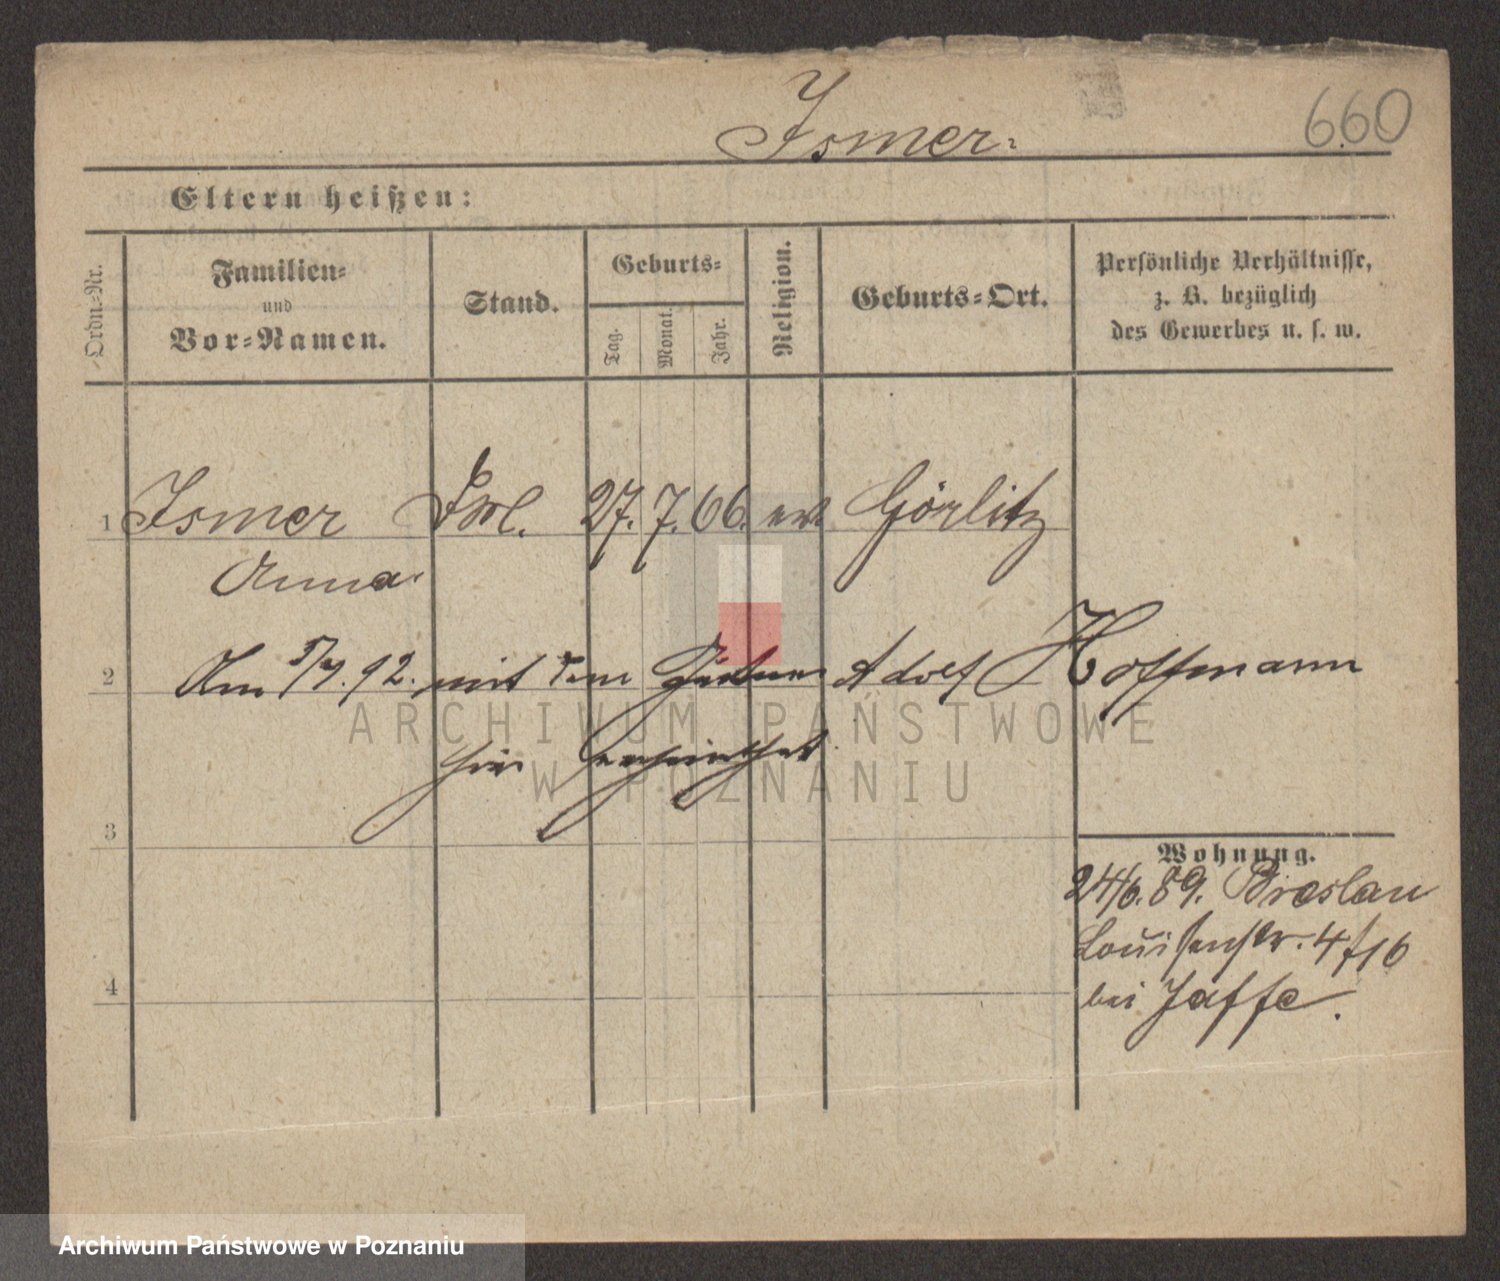 Ismer.
660
Eltern heißen:
Ordn=Nr.
Familien=
und
Vor=Namen.
Stand.
Geburts=
Tag.
Monat.
Jahr.
Religion.
Geburts=Ort.
Persönliche Verhältnisse,
z. B. bezüglich
des Gewerbes u. s. w.
1 Ismer Frl. 27. 7. 66. ev Görlitz
Anna
2 Am 5/4. 92. mit dem Adolf Hoffmann
hier verheirathet
3
Wohnung.
24/6. 89. Breslau
Louisenstr. 4/16
bei Jaffe.
4
ARCHIWUM PAŃSTWOWE
W POZNANIU
Archiwum Państwowe w Poznaniu